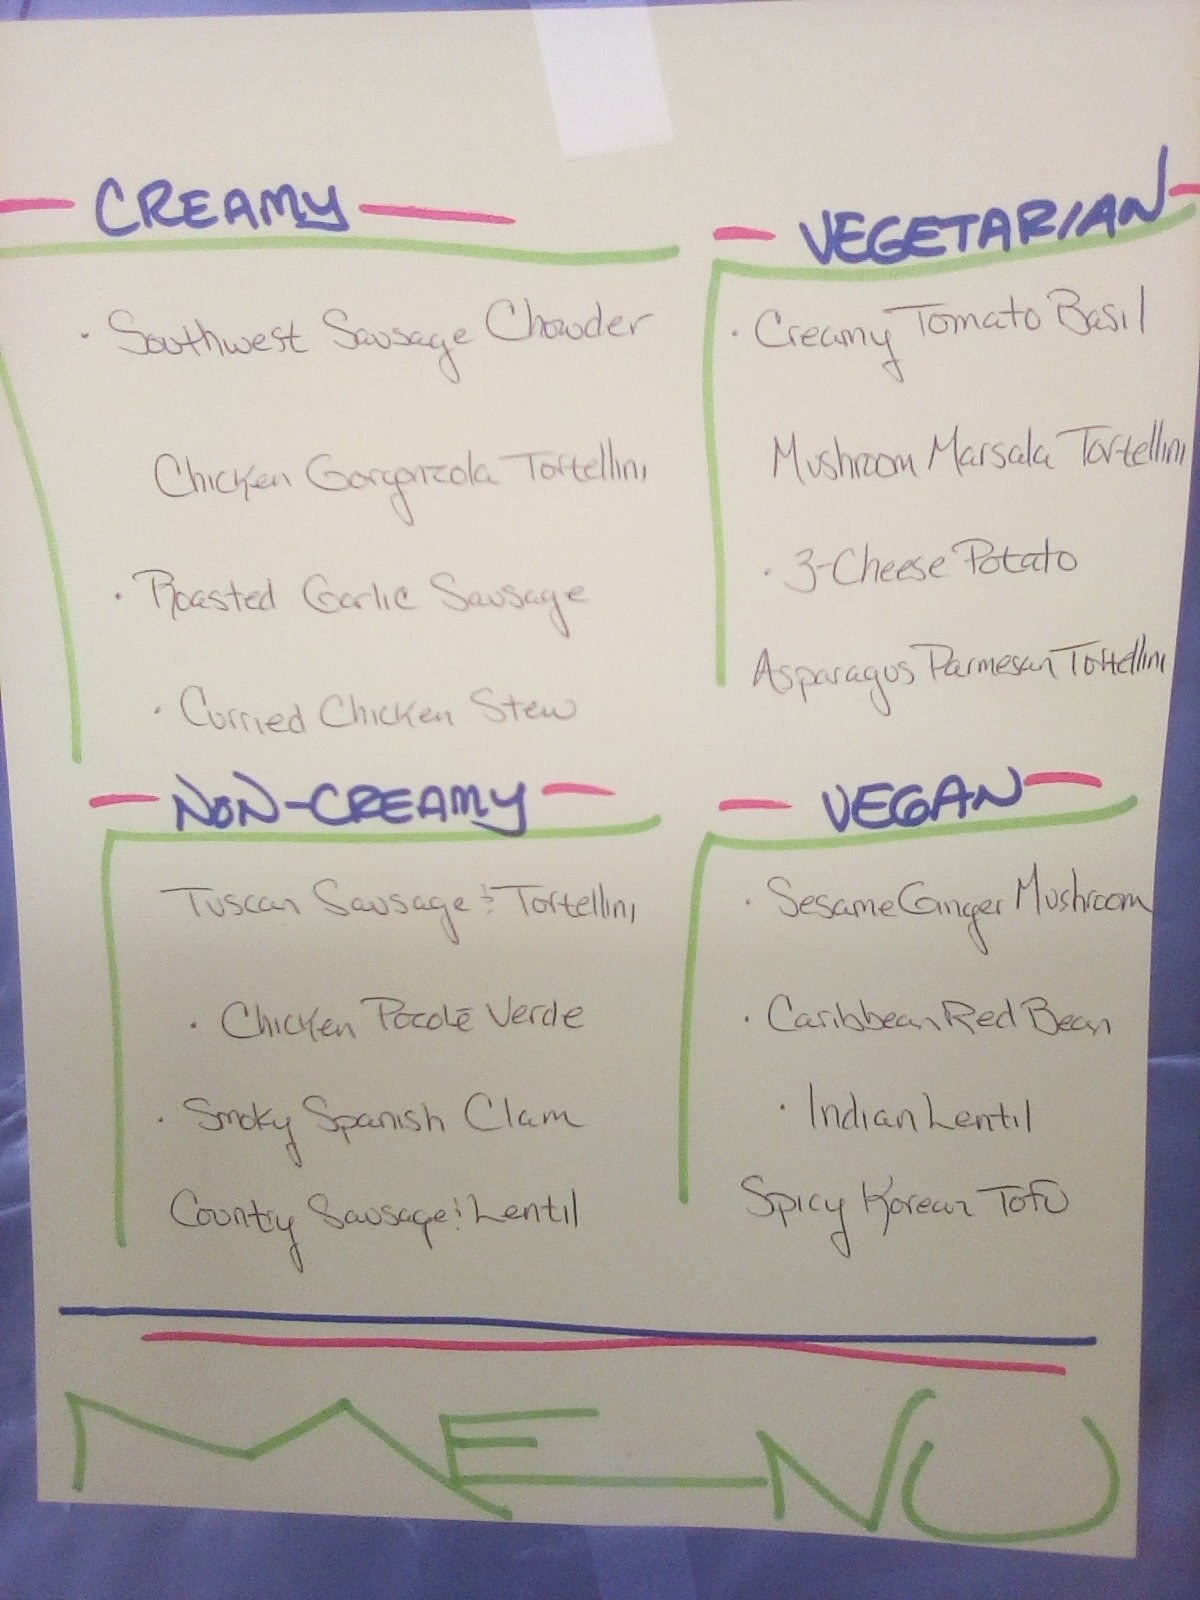 CREAMY
· Southwest Sausage Chowder
Chicken Gorgonzola Tortellini
· Roasted Garlic Sausage
· Curried Chicken Stew
VEGETARIAN
· Creamy Tomato Basil
Mushroom Marsala Tortellini
· 3-Cheese Potato
Asparagus Parmesan Tortellini
NON-CREAMY
Tuscan Sausage & Tortellini
· Chicken Pocolé Verde
· Smoky Spanish Clam
Country Sausage & Lentil
VEGAN
· Sesame Ginger Mushroom
· Caribbean Red Bean
· Indian Lentil
Spicy Korean Tofu
MENU